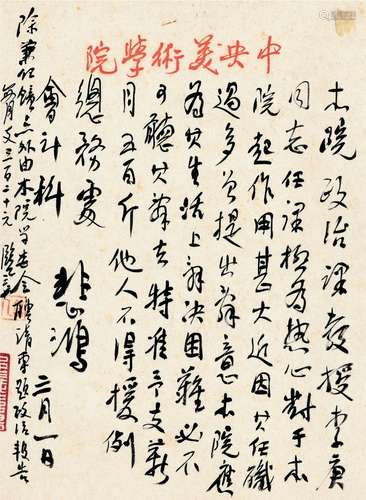 中央美術學院
本院政治課教授李庚
同志任課極為熱心對于本
院起作用甚大近因其任職
過多曾提出辭意本院應
為其生活上解決困難必不
可聽其辭去特准予支薪
月五百斤他人不得援例
總務處
會計科
悲鴻
二月一日
除兼任鐘點外由本院学委会聘請專題政治報告
每月支三百二十元